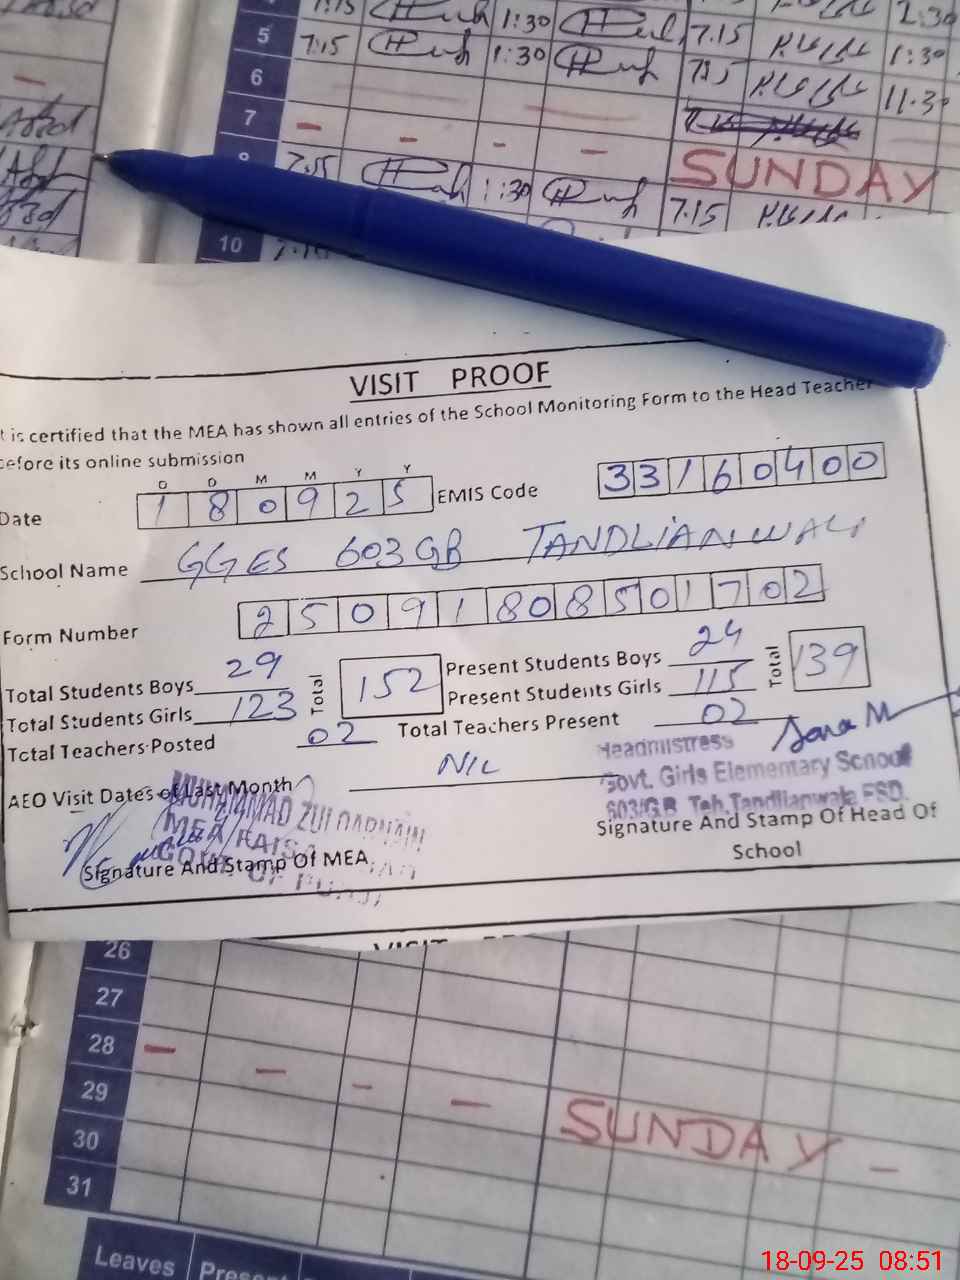 7:15 1:30 2:30
5 7:15 1:30 7.15 1:30
6 7:15 11.30
7
SUNDAY
8 7:15 1:30 7.15
10
VISIT PROOF
t is certified that the MEA has shown all entries of the School Monitoring Form to the Head Teacher
before its online submission
D D M M Y Y
Date 1 8 0 9 2 5 EMIS Code 3 3 1 6 0 4 0 0
School Name GGES 603 GB TANDLIANWALI
Form Number 2 5 0 9 1 8 0 8 5 0 1 7 0 2
Total Students Boys 29 Total 152 Present Students Boys 24 Total 139
Total Students Girls 123 Present Students Girls 115
Total Teachers Posted 02 Total Teachers Present 02
AEO Visit Dates of Last Month NIL
Headmistress
Govt. Girls Elementary School
603/G.B Teh.Tandlianwala FSD.
MUHAMMAD ZULQARNAIN
MEA
Signature And Stamp Of MEA
Signature And Stamp Of Head Of
School
26
27
28
29 SUNDAY
30
31
Leaves
18-09-25 08:51